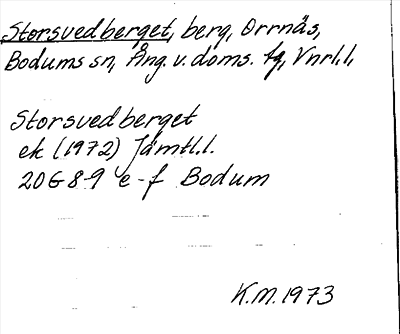 Storsvedberget, berg, Orrnäs,
Bodums sn, Ång. v. doms. tg, Vnrl. l,
Storsvedberget
ek (1972) Jämtl. l.
20G 8-9 e-f Bodum
K.M. 1973